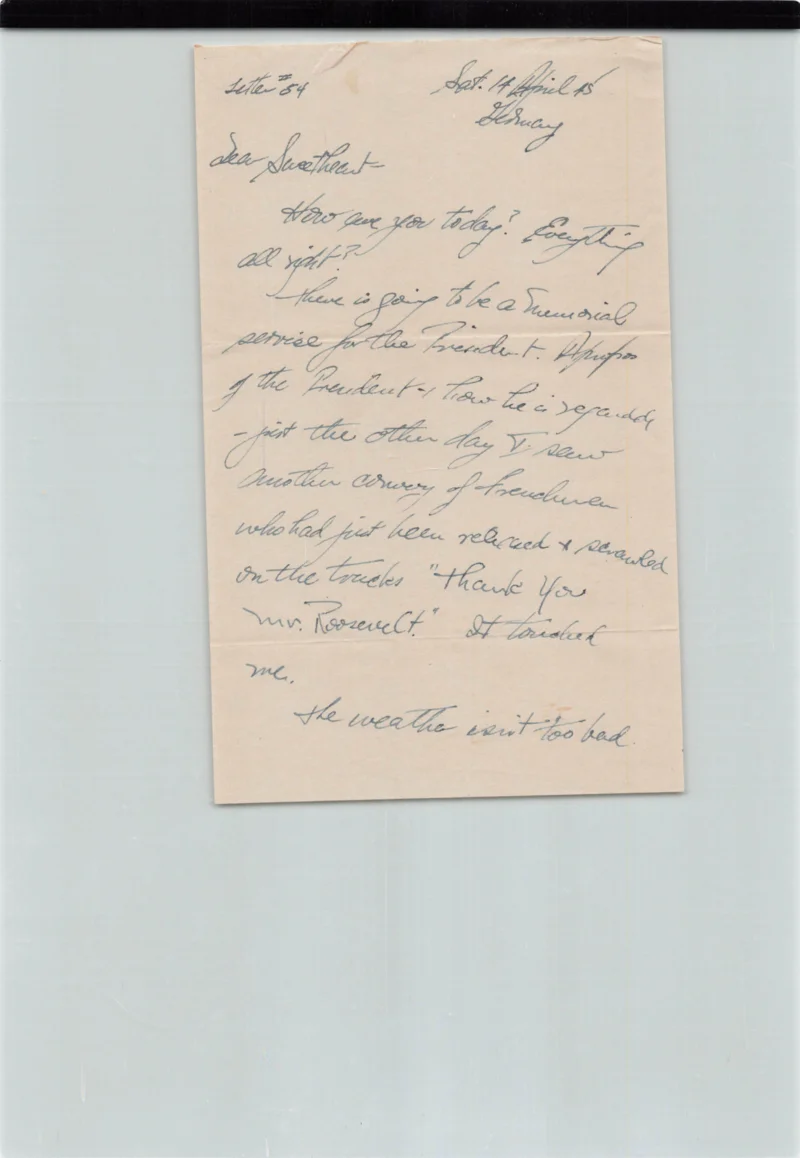 Letter #54
Sat. 14 April 45
Germany
Dear Sweetheart -
How are you today? Everything
all right?
There is going to be a memorial
service for the President. Apropos
of the President & how he is regarded
- just the other day I saw
another convoy of Frenchmen
who had just been released & scrawled
on the trucks "Thank You
Mr. Roosevelt." It touched
me.
The weather isn't too bad.